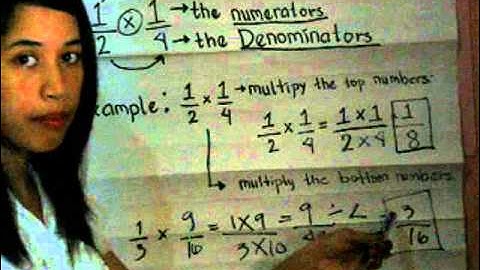 1/2 × 1/4 → the numerators
→ the Denominators
xample: 1/2 × 1/4 → multipy the top numbers:
1/2 × 1/4 = 1 × 1 / 2 × 4 1/8
↳ multiply the bottom numbers.
1/3 × 9/16 = 1×9 / 3×16 = 9 ÷ = 3/16